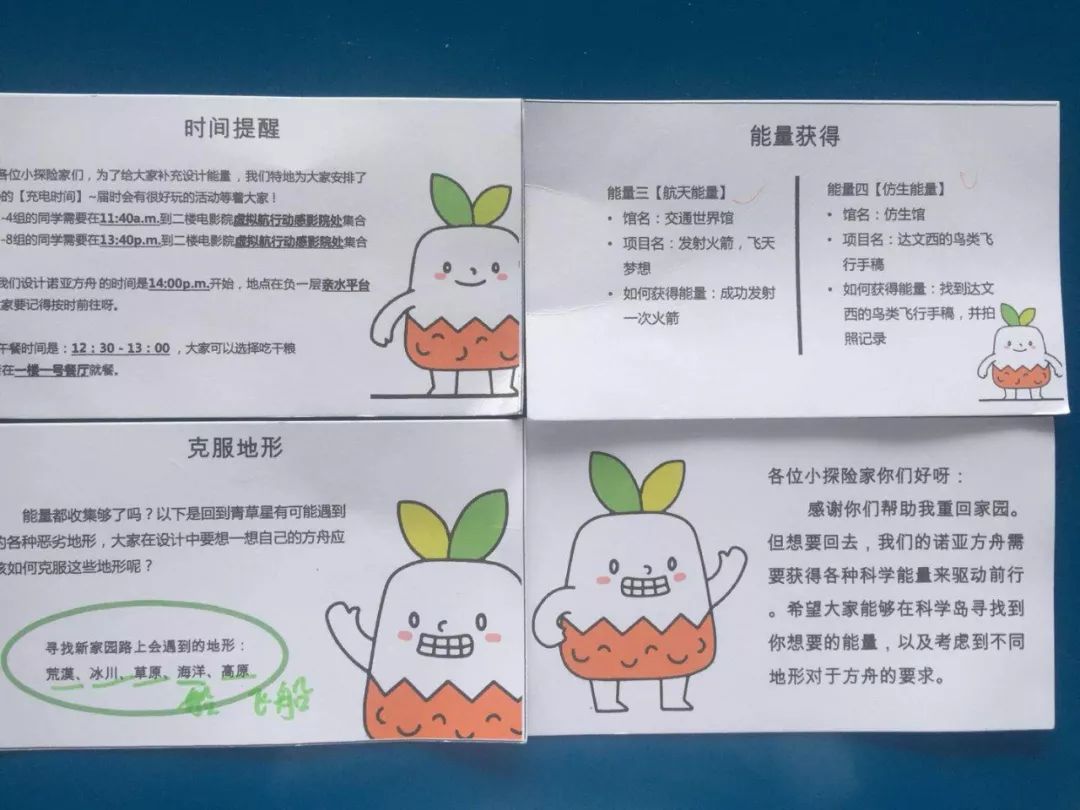 时间提醒
各位小探险家们，为了给大家补充设计能量，我们特地为大家安排了
的【充电时间】~届时会有很好玩的活动等着大家！
-4组的同学需要在11:40a.m.到二楼电影院虚拟航行动感影院处集合
-8组的同学需要在13:40p.m.到二楼电影院虚拟航行动感影院处集合
我们设计诺亚方舟的时间是14:00p.m.开始，地点在负一层亲水平台
家要记得按时前往呀。
午餐时间是：12：30 - 13：00 ，大家可以选择吃干粮
在一楼一号餐厅就餐。
能量获得
能量三【航天能量】
• 馆名：交通世界馆
• 项目名：发射火箭，飞天
梦想
• 如何获得能量：成功发射
一次火箭
能量四【仿生能量】
• 馆名：仿生馆
• 项目名：达文西的鸟类飞
行手稿
• 如何获得能量：找到达文
西的鸟类飞行手稿，并拍
照记录
克服地形
能量都收集够了吗？以下是回到青草星有可能遇到
的各种恶劣地形，大家在设计中要想一想自己的方舟应
该如何克服这些地形呢？
寻找新家园路上会遇到的地形：
荒漠、冰川、草原、海洋、高原
船 飞船
各位小探险家你们好呀：
感谢你们帮助我重回家园。
但想要回去，我们的诺亚方舟需
要获得各种科学能量来驱动前行
。希望大家能够在科学岛寻找到
你想要的能量，以及考虑到不同
地形对于方舟的要求。